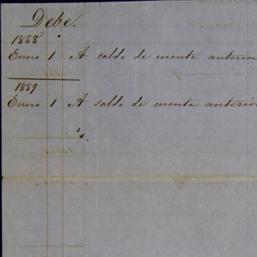 Debe.
1858
Enero 1 A saldo de cuenta anterior
1859
Enero 1 A saldo de cuenta anterior
"s.